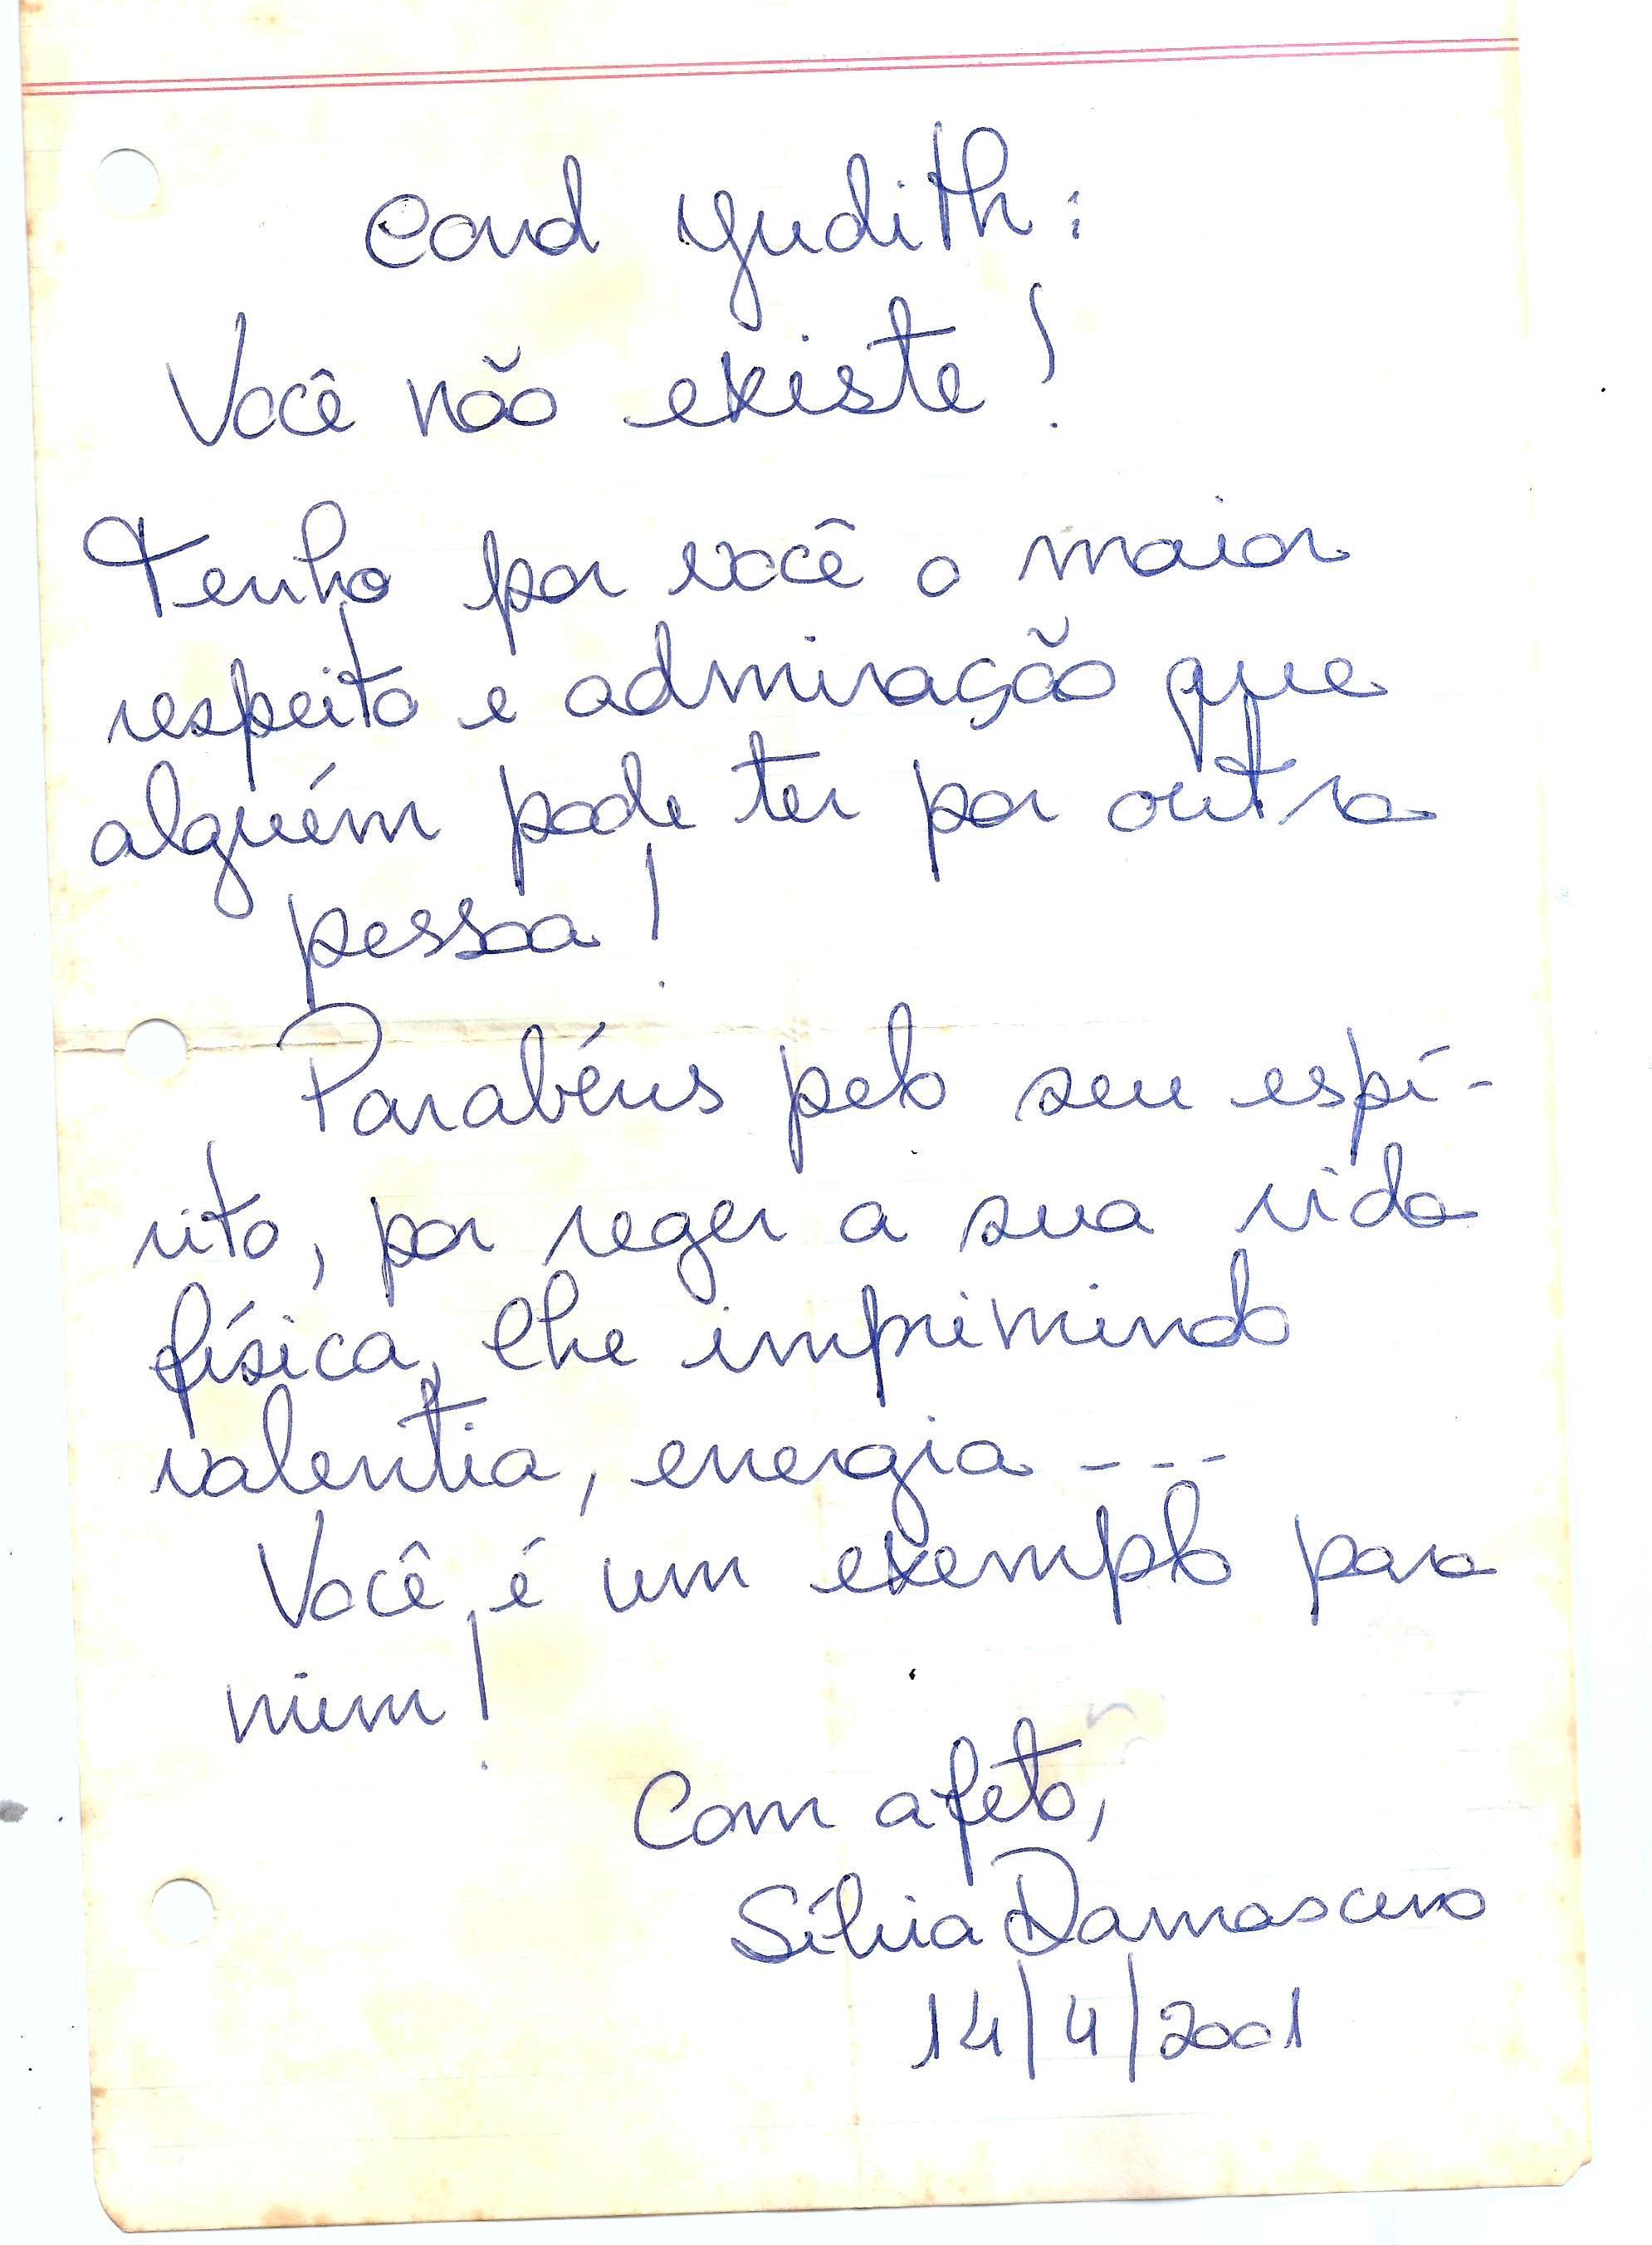 Card Yudith:
Você não existe!
Tenho por você o maior
respeito e admiração que
alguém pode ter por outra
pessoa!
Parabéns pelo seu espí-
rito, por reger a sua vida
física, lhe imprimindo
valentia, energia ---
Você é um exemplo para
mim!
Com afeto,
Sílvia Damasceno
14/4/2001